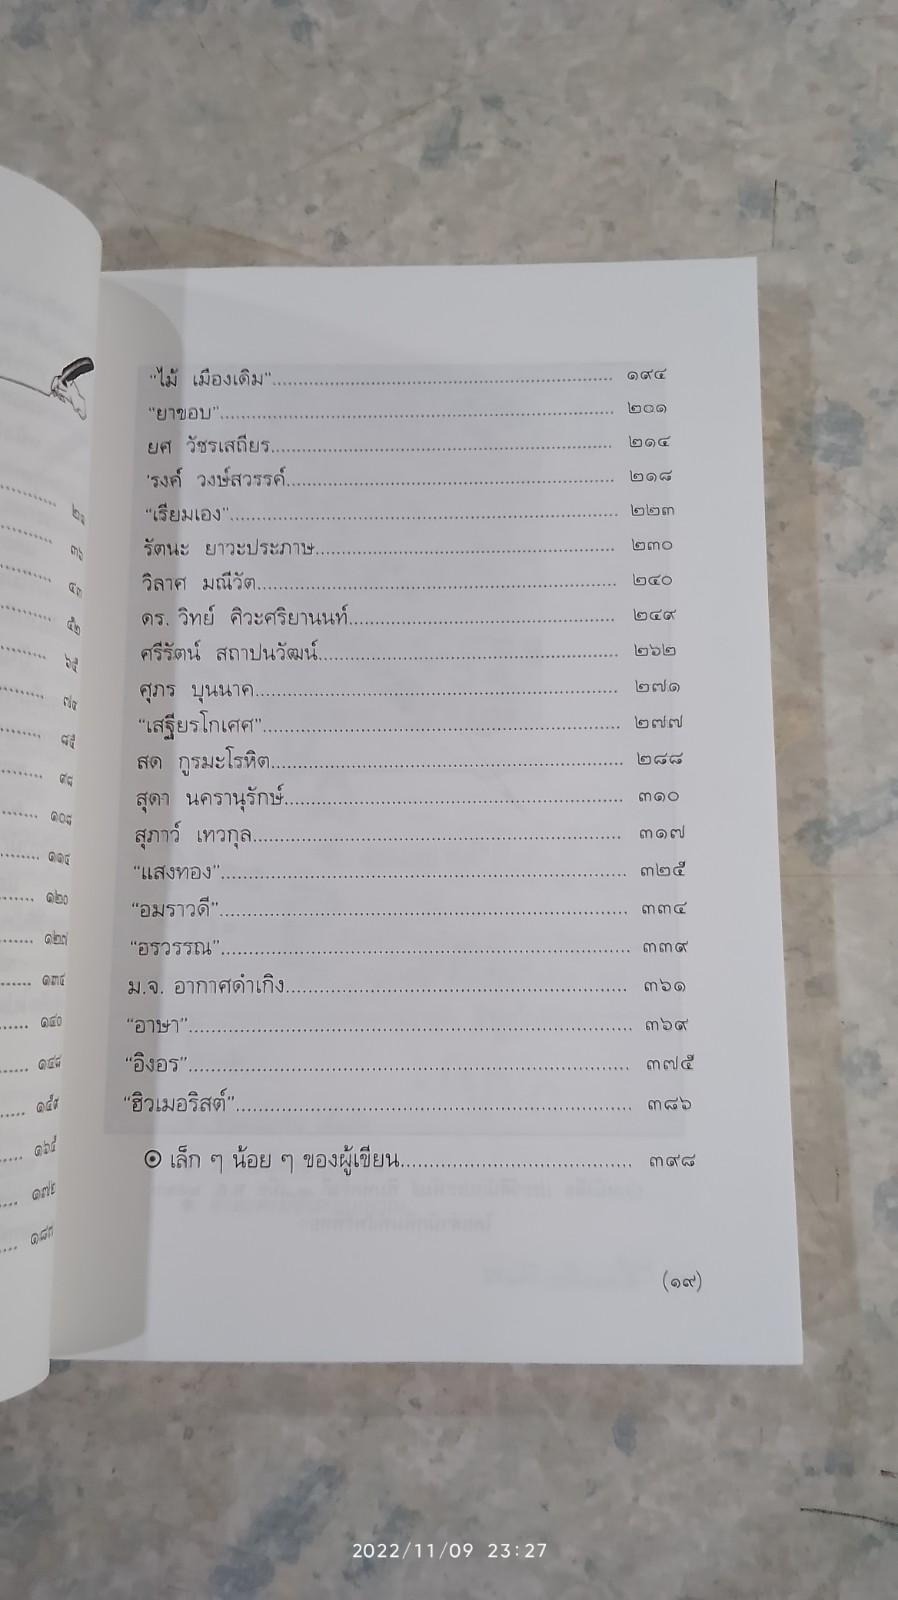 ๒๑
๓๖
๔๓
๕๒
๖๕
๗๔
๘๕
๙๘
๑๐๘
๑๑๔
๑๒๐
๑๒๗
๑๓๔
๑๔๐
๑๔๘
๑๕๙
๑๖๕
๑๗๒
๑๘๓
“ไม้ เมืองเดิม”.......... ๑๙๔
“ยาขอบ”.......... ๒๐๑
ยศ วัชรเสถียร.......... ๒๑๔
’รงค์ วงษ์สวรรค์.......... ๒๑๘
“เรียมเอง”.......... ๒๒๓
รัตนะ ยาวะประภาษ.......... ๒๓๐
วิลาศ มณีวัต.......... ๒๔๐
ดร. วิทย์ ศิวะศริยานนท์.......... ๒๔๙
ศรีรัตน์ สถาปนวัฒน์.......... ๒๖๒
ศุภร บุนนาค.......... ๒๗๑
“เสฐียรโกเศศ”.......... ๒๗๗
สด กูรมะโรหิต.......... ๒๘๘
สุดา นครานุรักษ์.......... ๓๑๐
สุภาว์ เทวกุล.......... ๓๑๗
“แสงทอง”.......... ๓๒๕
“อมราวดี”.......... ๓๓๔
“อรวรรณ”.......... ๓๓๙
ม.จ. อากาศดำเกิง.......... ๓๖๑
“อาษา”.......... ๓๖๙
“อิงอร”.......... ๓๗๕
“ฮิวเมอริสต์”.......... ๓๘๖
⦿ เล็ก ๆ น้อย ๆ ของผู้เขียน.......... ๓๙๘
(๑๙)
2022/11/09 23:27